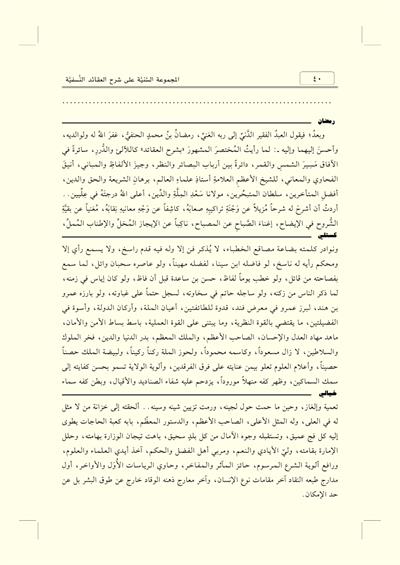 ٤٠
المجموعة السَّنيَّة على شرح العقائد النَّسفيَّة
رمضان
وبعد؛ فيقول العبدُ الفقير الدَّنيّ إلى ربه الغنيّ، رمضانُ بنُ محمدٍ الحنفيُّ، غفرَ اللهُ له ولوالديه،
وأحسنَ إليهما وإليه .: لما رأيتُ المختصرَ المشهورَ «بشرح العقائد» كاللآلئ والدُّرر، سائرةً في
الآفاق مَسِيرَ الشمس والقمر، دائرةً بين أرباب البصائر والنظر، وجيزَ الألفاظ والمباني، أنيقَ
الفحاوي والمعاني، للشيخ الأعظم العلامة أستاذِ علماءِ العالم، برهانِ الشريعة والحق والدين،
أفضلِ المتأخرين، سلطانِ المتبحِّرين، مولانا سَعْدِ المِلَّةِ والدِّين، أعلى اللهُ درجتَهُ في عِلِّيين. .
أردتُ أن أشرحَ له شرحاً مُزيلاً عن وَجْنةِ تراكيبِهِ صعابَهُ، كاشفاً عن وَجْهِ معانيهِ نِقابَهُ، مُغنياً عن بقيَّةِ
الشُّروح في الإيضاح، إغناءَ الصَّباحِ عن المصباح، ناكباً عن الإيجازِ المُخلِّ والإطنابِ المُملِّ،
كستلي
ونوادر كلمته بضاعة مصاقع الخطباء، لا يُذكر فن إلا وله فيه قدم راسخ، ولا يسمع رأي إلا
ومحكم رأيه له ناسخ، لو فاضله ابن سينا، لفضله مهيناً، ولو عاصره سحبان وائل، لما سمع
بفصاحته من قائل، ولو خطب يوماً لفاظ، حسن بن ساعدة قبل أن فاظ، ولو كان إياس في زمنه،
لما ذكر الناس من زكنه، ولو ساجله حاتم في سخاوته، لسجل حتماً على غباوته، ولو بارزه عمرو
بن هند، لبرز عمرو في معرض فند، قدوة للطائفتين، أعيان الملة، وأركان الدولة، وأسوة في
الفضيلتين، ما يقتضي بالقوة النظرية، وما يبتنى على القوة العملية، باسط بساط الأمن والأمان،
ماهد مهاد العدل والإحسان، الصاحب الأعظم، والملك المعظم، بدر الدنيا والدين، فخر الملوك
والسلاطين، لا زال مسعوداً، وكاسمه محموداً، ولحوزة الملة ركناً ركيناً، ولبيضة الملك حصناً
حصيناً، وأعلام العلوم تعلو بيمن عنايته على فرق الفرقدين، وألوية الولاية تسمو بحسن كفايته إلى
سمك السماكين، وظهر كفه منهلاً موروداً، يزدحم عليه شفاه الصناديد والأقيال، وبطن كفه سماء
خيالي
تعمية وإلغاز، وحين ما حمت حول لجينه، ورمت تزيين شينه وسينه. . ألحقته إلى خزانة من لا مثل
له في العلى، وله المثل الأعلى، الصاحب الأعظم، والدستور المعظَّم، بابه كعبة الحاجات يطوى
إليه كل فج عميق، وتستقبله وجوه الآمال من كل بلدٍ سحيق، باهت تيجان الوزارة بهامته، وحلل
الإمارة بقامته، وليّ الأيادي والنعم، ومربي أهل الفضل والحكم، آخذ أيدي العلماء والعلوم،
ورافع ألوية الشرع المرسوم، حائز المآثر والمفاخر، وحاوي الرياسات الأُوَل والأواخر، أول
مدارج طبعه النقاد آخر مقامات نوع الإنسان، وآخر معارج ذهنه الوقاد خارج عن طوق البشر بل عن
حد الإمكان.